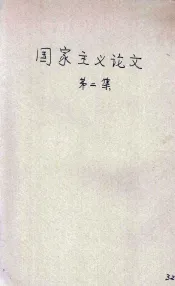 国家主义论文
第二集
32